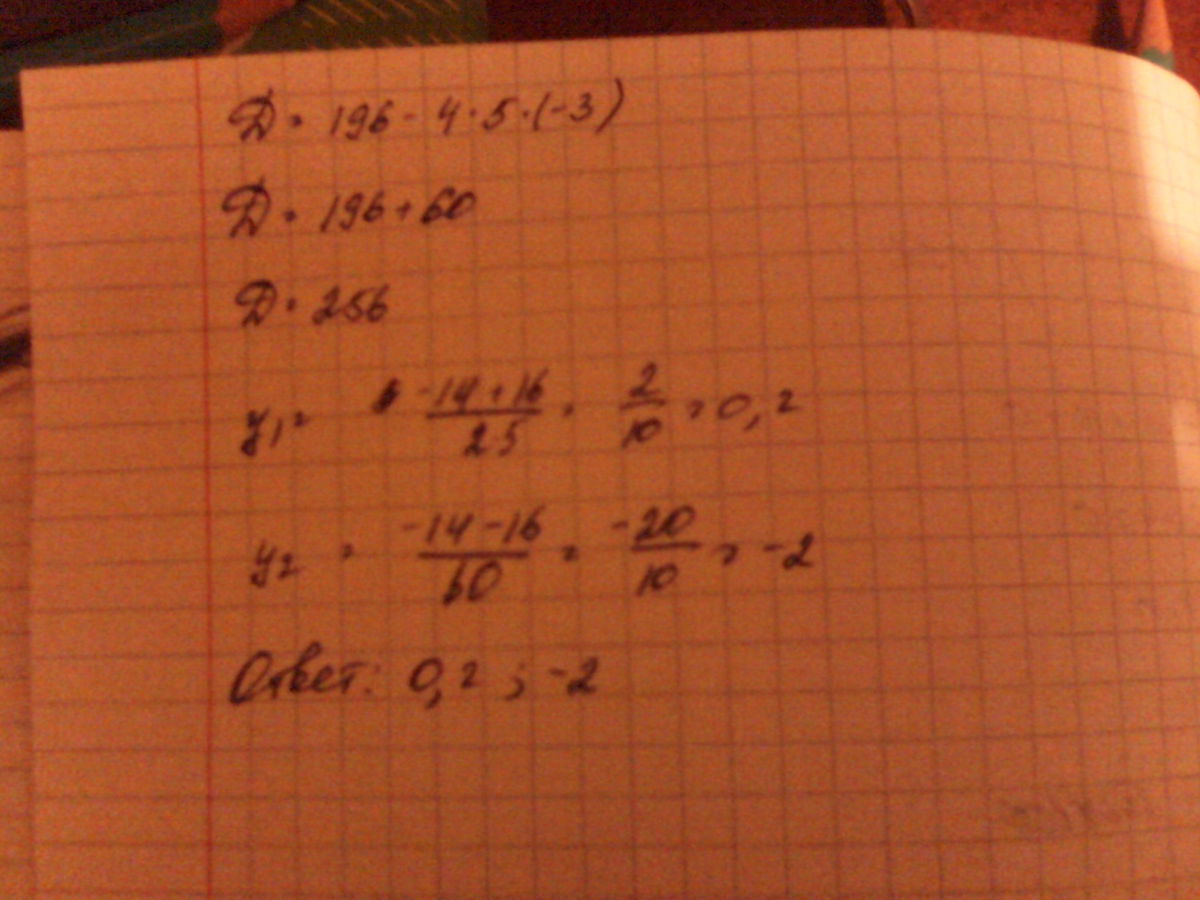 D = 196 - 4·5·(-3)
D = 196 + 60
D = 256
y₁ = -14+16/2·5 = 2/10 = 0,2
y₂ = -14-16/10 = -20/10 = -2
Ответ: 0,2 ; -2